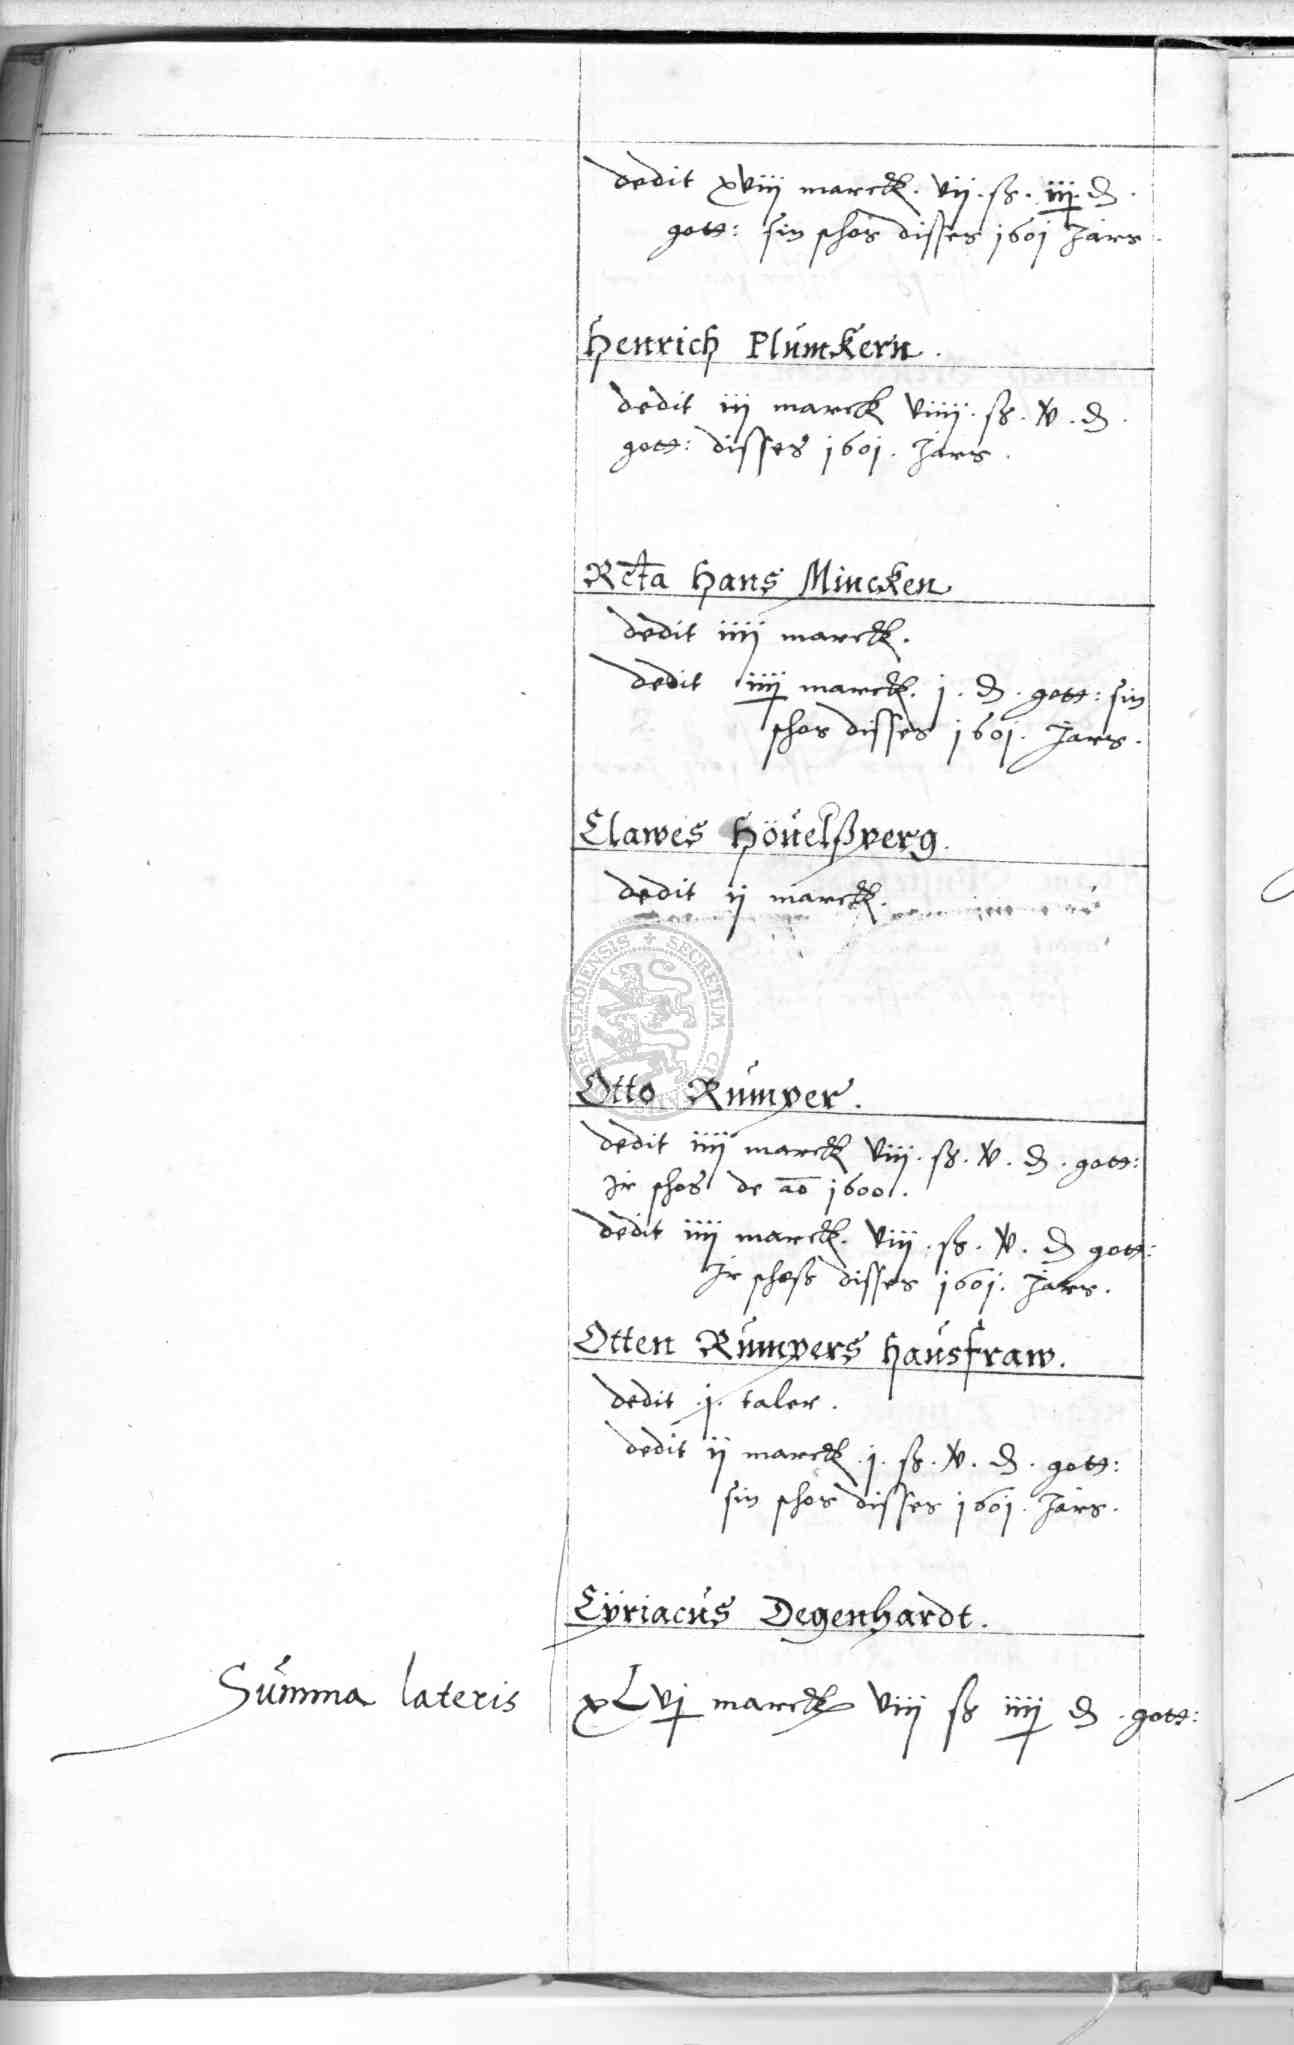 dedit xviii marck. vii. ß. iii. d.
gott: sin schos disses 1601 Jars.
Henrich Plumkern.
dedit iij marck viiij. ß. v. d.
gott: disses 1601. Jars.
Rcta Hans Mincken
dedit iiij marck.
dedit iiij marck. j. d. gott: sin
schos disses 1601. Jars.
Clawes Höuelßperg.
dedit ij marck.
SECRETUM
Otto Rumper.
dedit iiij marck viij. ß. v. d. gott:
Ir schos de ao 1600.
dedit iiij marck. viij. ß. v. d gott:
Ir schoss disses 1601. Jars.
Otten Rumpers Hausfraw.
dedit .j. taler.
dedit ij marck .j. ß. v. d. gott:
sin schos disses 1601. Jars.
Cÿriacus Degenhardt.
Summa lateris xLvj marck viij ß iiij d. gott: